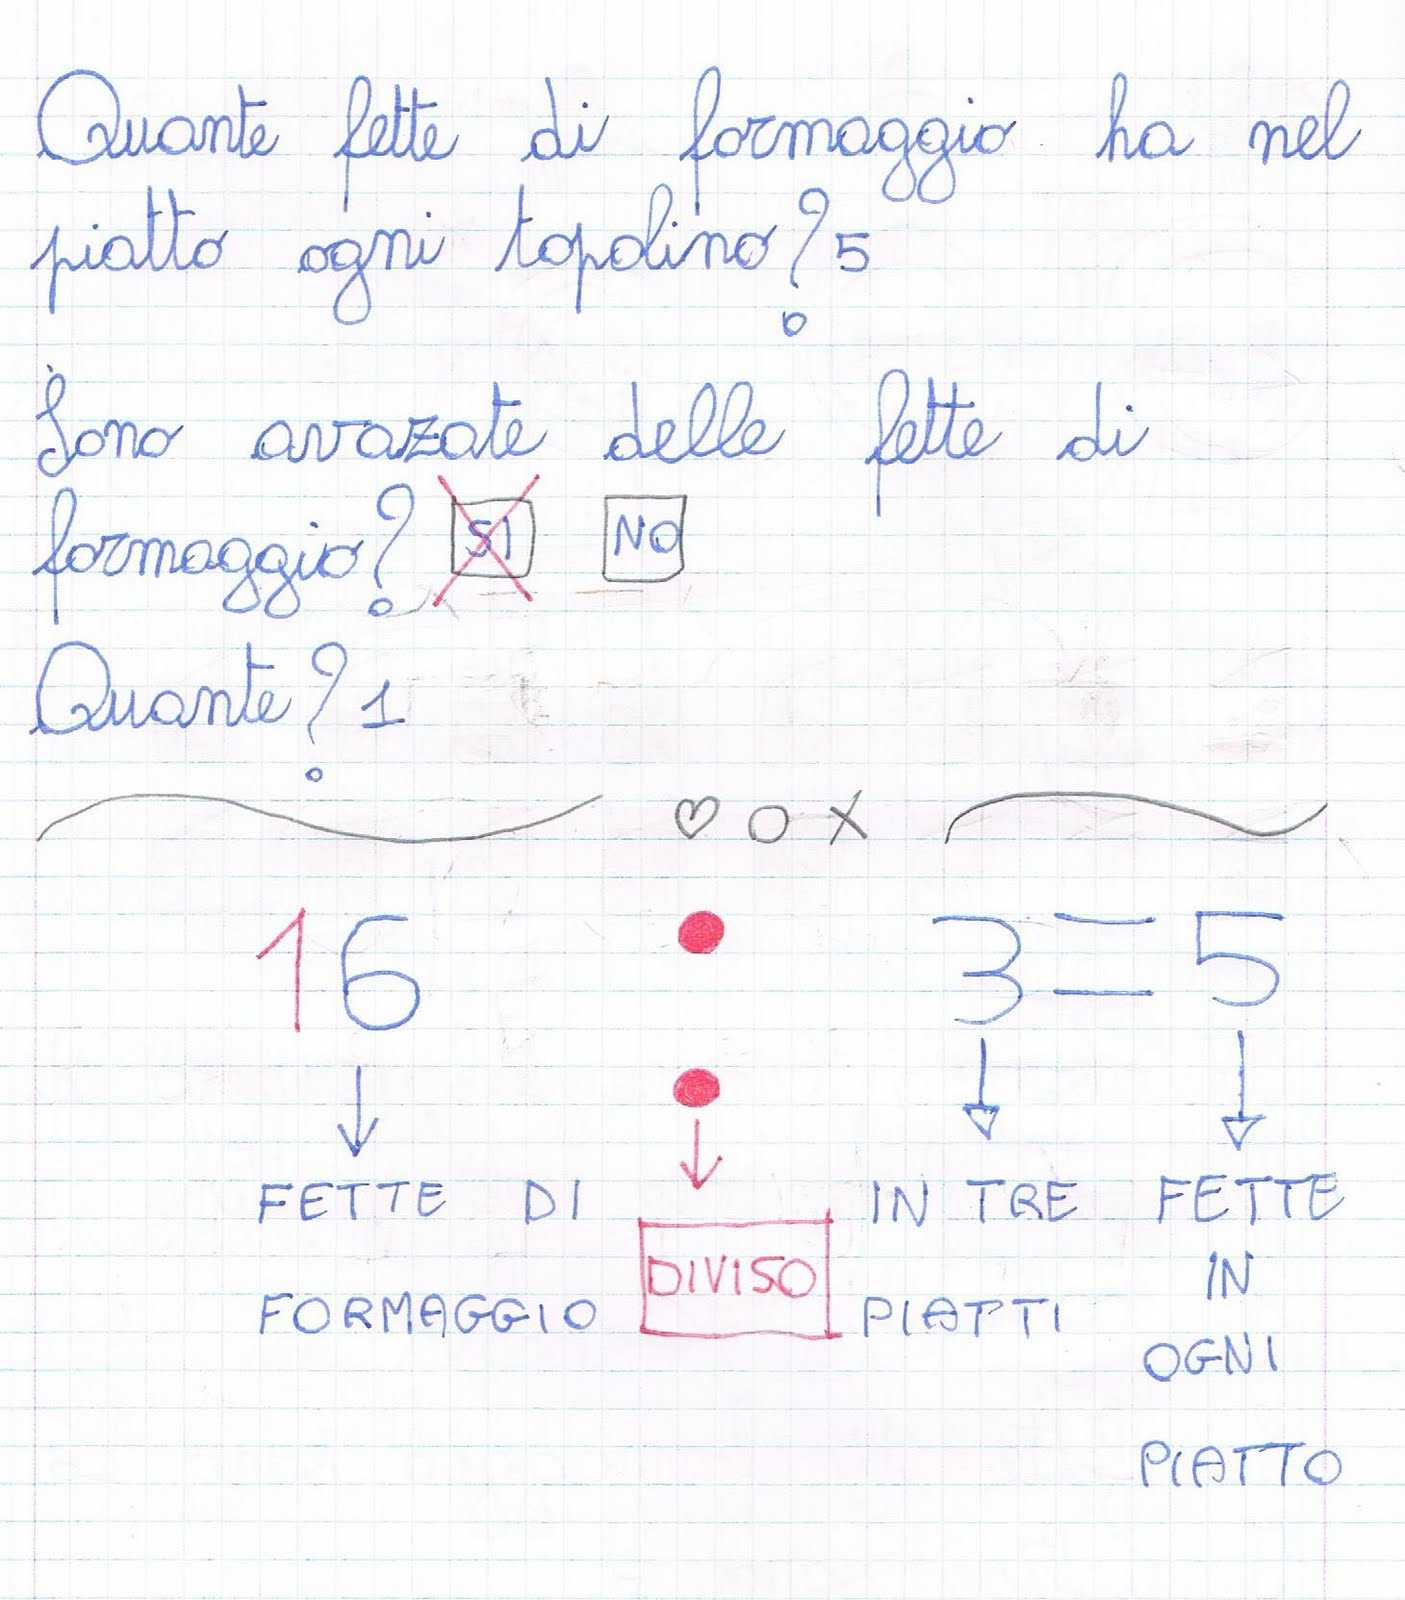 Quante fette di formaggio ha nel
piatto ogni topolino? 5
Sono avazate delle fette di
formaggio? SI NO
Quante? 1
16 : 3 = 5
FETTE DI
FORMAGGIO
DIVISO
IN TRE
PIATTI
FETTE
IN
OGNI
PIATTO